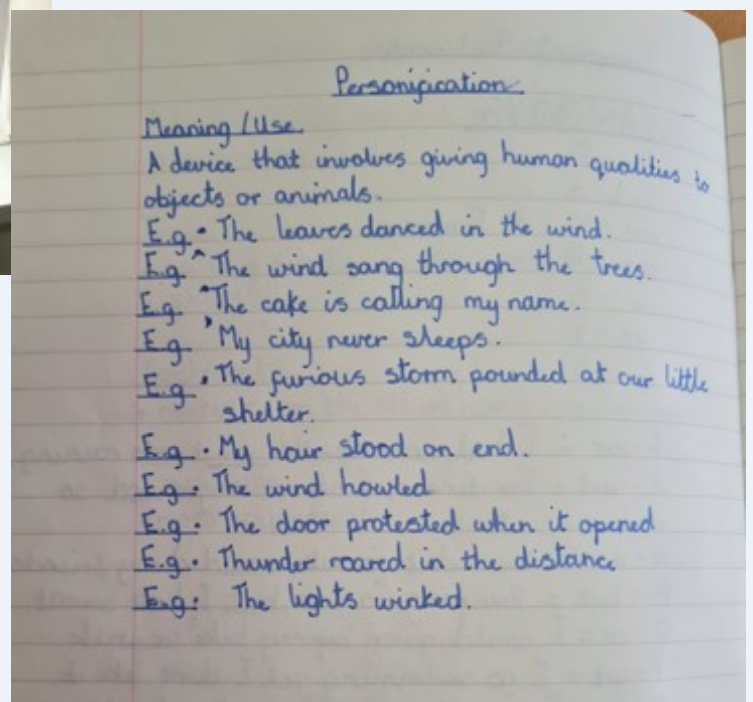 Personification
Meaning / Use
A device that involves giving human qualities to
objects or animals.
E.g. • The leaves danced in the wind.
E.g. • The wind sang through the trees.
E.g. • The cake is calling my name.
E.g. • My city never sleeps.
E.g. • The furious storm pounded at our little
shelter.
E.g. • My hair stood on end.
E.g. • The wind howled
E.g. • The door protested when it opened
E.g. • Thunder roared in the distance
E.g. • The lights winked.